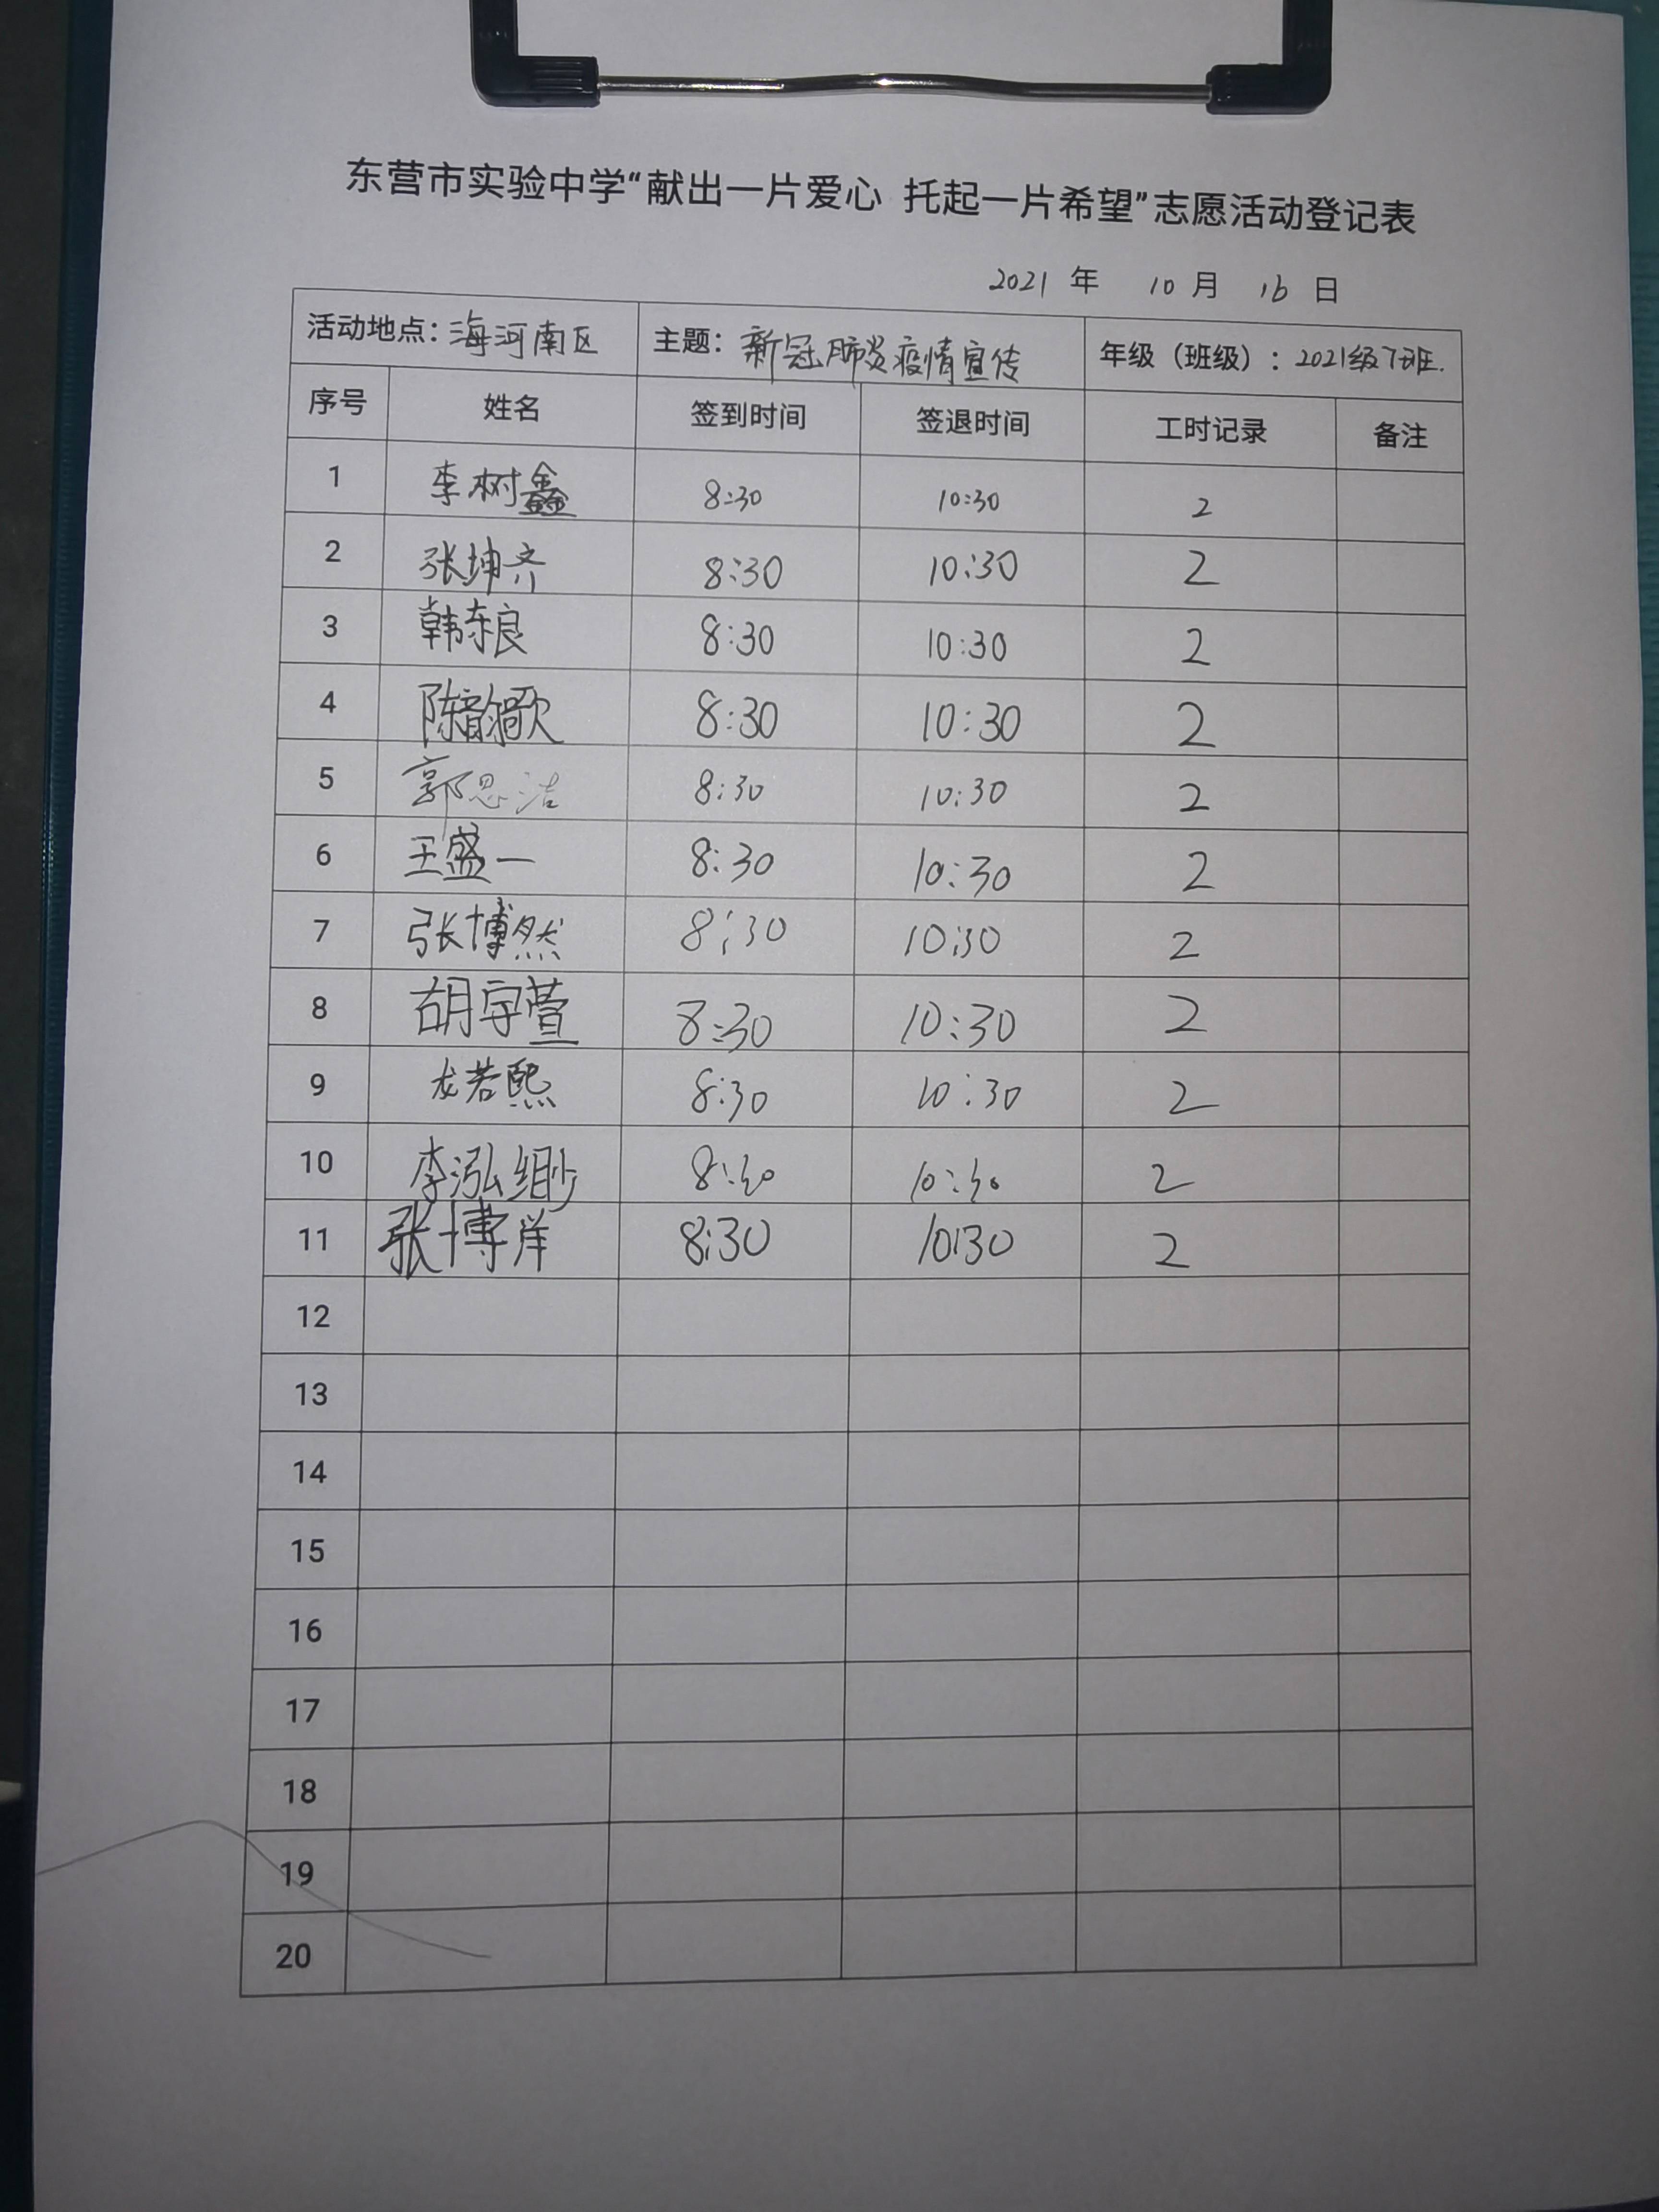 东营市实验中学“献出一片爱心 托起一片希望”志愿活动登记表
2021 年 10 月 16 日
活动地点：海河南区 主题：新冠肺炎疫情宣传 年级（班级）：2021级7班.
序号 姓名 签到时间 签退时间 工时记录 备注
1 李树鑫 8:30 10:30 2
2 张坤齐 8:30 10:30 2
3 韩东良 8:30 10:30 2
4 陈韵歌 8:30 10:30 2
5 郭思洁 8:30 10:30 2
6 王盛一 8:30 10:30 2
7 张博然 8:30 10:30 2
8 胡宇萱 8:30 10:30 2
9 龙若熙 8:30 10:30 2
10 李泓缈 8:30 10:30 2
11 张博洋 8:30 10:30 2
12
13
14
15
16
17
18
19
20